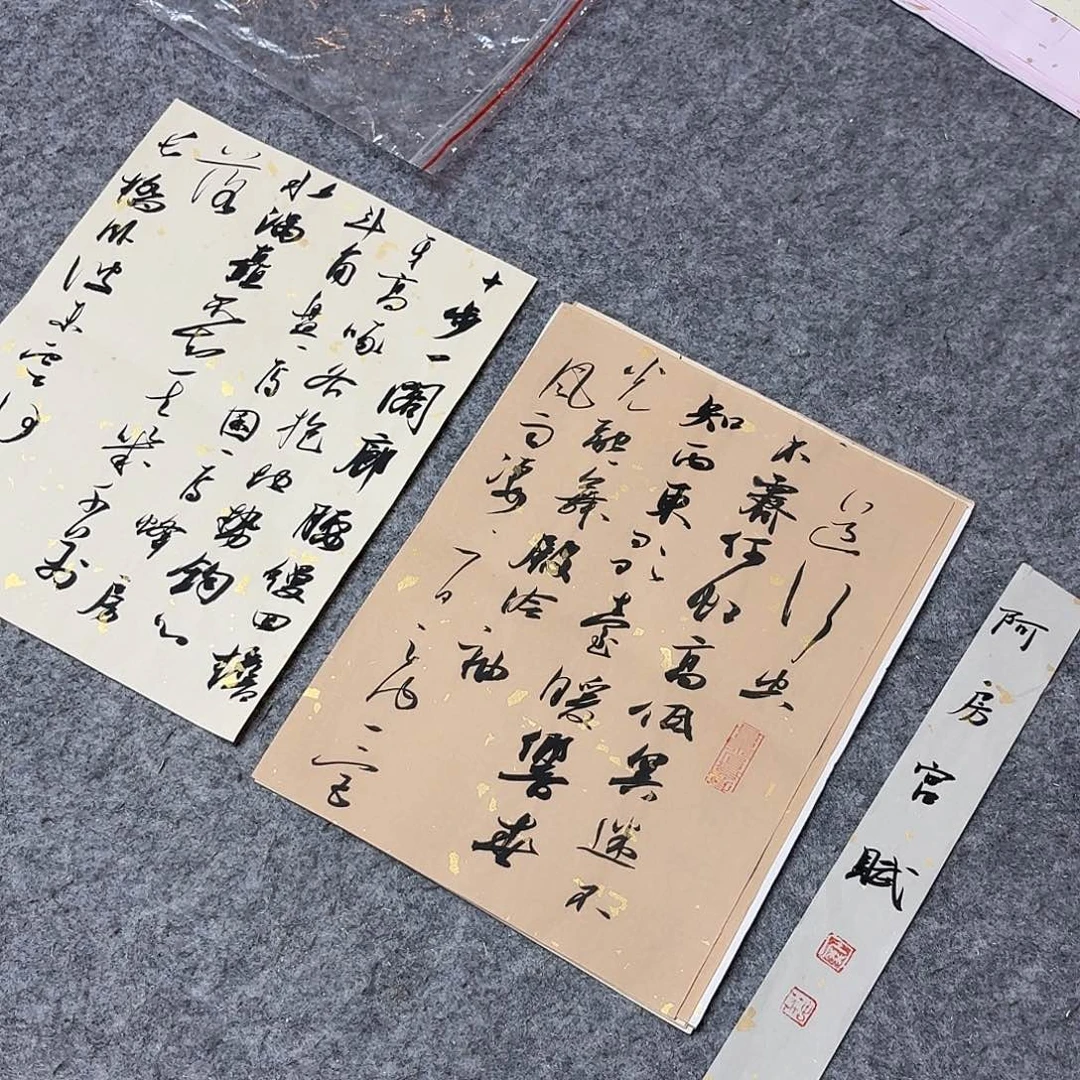 阿房宮賦
道行空
不霽何虹高低冥迷不
知西東歌臺暖響春
光融々舞殿冷袖
風雨淒々一日之内一宮
十步一閣廊腰縵回檐
牙高啄各抱地勢鉤心
斗角盤々焉囷々焉蜂房
水渦矗不知其幾千萬
落
長橋卧波未雲何